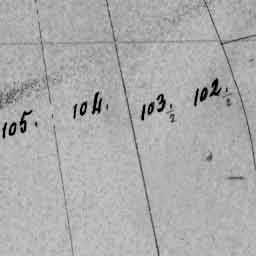 105. 104. 103.½ 102.½